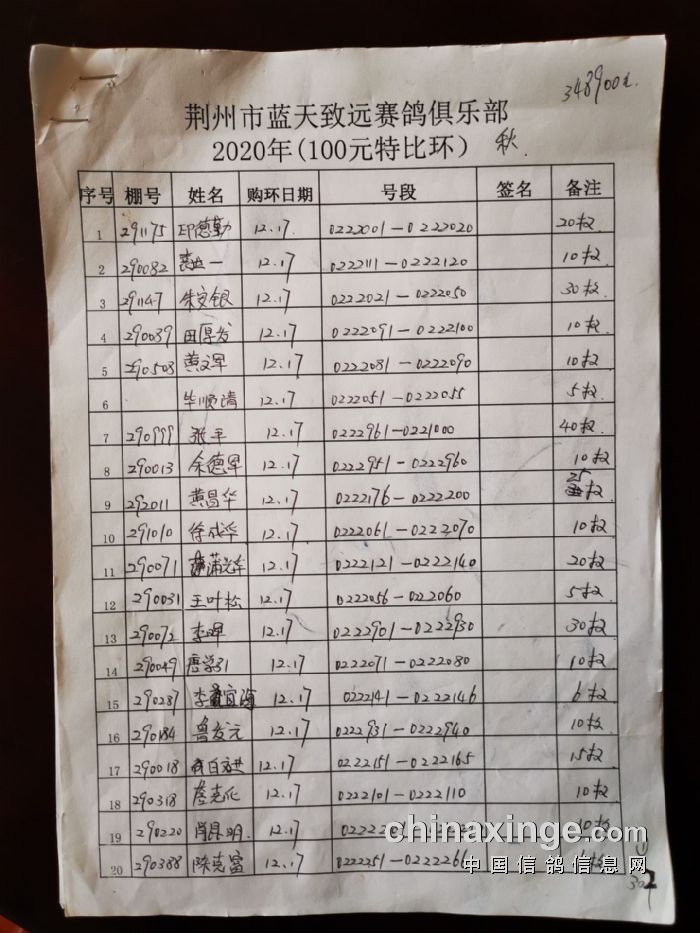 348900元
荆州市蓝天致远赛鸽俱乐部
2020年(100元特比环) 秋
序号 棚号 姓名 购环日期 号段 签名 备注
1 291175 邱德勤 12.17 0222001-0222020 20枚
2 290082 一 12.17 0222111-0222120 10枚
3 291147 朱安银 12.17 0222021-0222050 30枚
4 290039 田厚发 12.17 0222091-0222100 10枚
5 290508 黄文军 12.17 0222081-0222090 10枚
6 毕顺清 12.17 0222051-0222055 5枚
7 290999 张平 12.17 0222961-0221000 40枚
8 290013 余德军 12.17 0222951-0222960 10枚
9 292011 黄昌华 12.17 0222176-0222200 25枚
10 291010 徐成华 12.17 0222061-0222070 10枚
11 290071 蒲光车 12.17 0222121-0222140 20枚
12 290031 王叶松 12.17 0222056-022060 5枚
13 290072 李晖 12.17 0222901-0222930 30枚
14 290049 唐学 12.17 0222071-0222080 10枚
15 290287 李宜海 12.17 0222141-0222146 6枚
16 290184 鲁发元 12.17 0222931-0222940 10枚
17 290018 12.17 0222151-0222165 15枚
18 290318 12.17 0222101-0222110 10枚
19 290220 肖昆明 12.17 10枚
20 290388 陈克富 12.17
chinaxinge.com
中国信鸽信息网
①